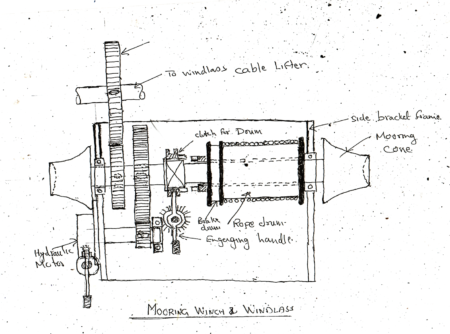 To windlass cable Lifter.
clutch for Drum
side bracket frame
Mooring
Cone
Brake
drum
Rope drum
Engerging handle.
Hydraulic
Motor
MOORING WINCH & WINDLASS